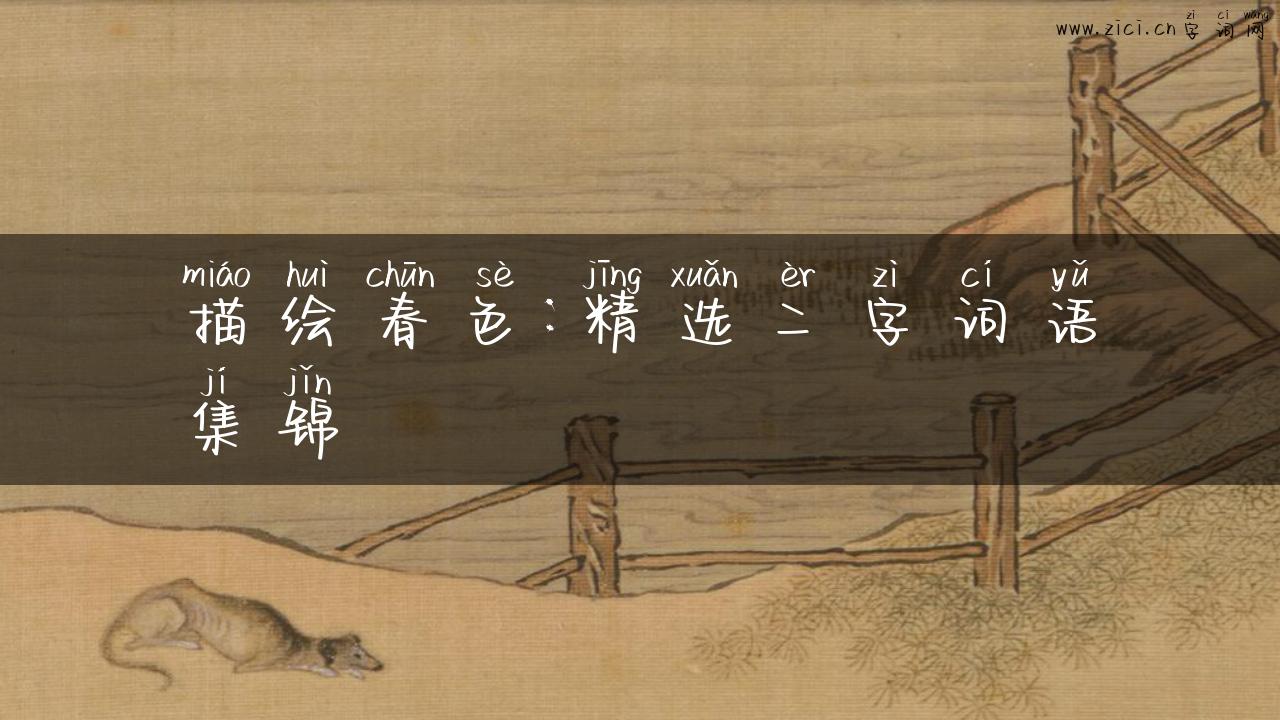 zì cí wǎng
www.zici.cn 字词网
miáo huì chūn sè jīng xuǎn èr zì cí yǔ
描绘春色：精选二字词语
jí jǐn
集锦